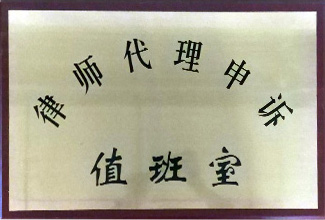 律师代理申诉
值班室